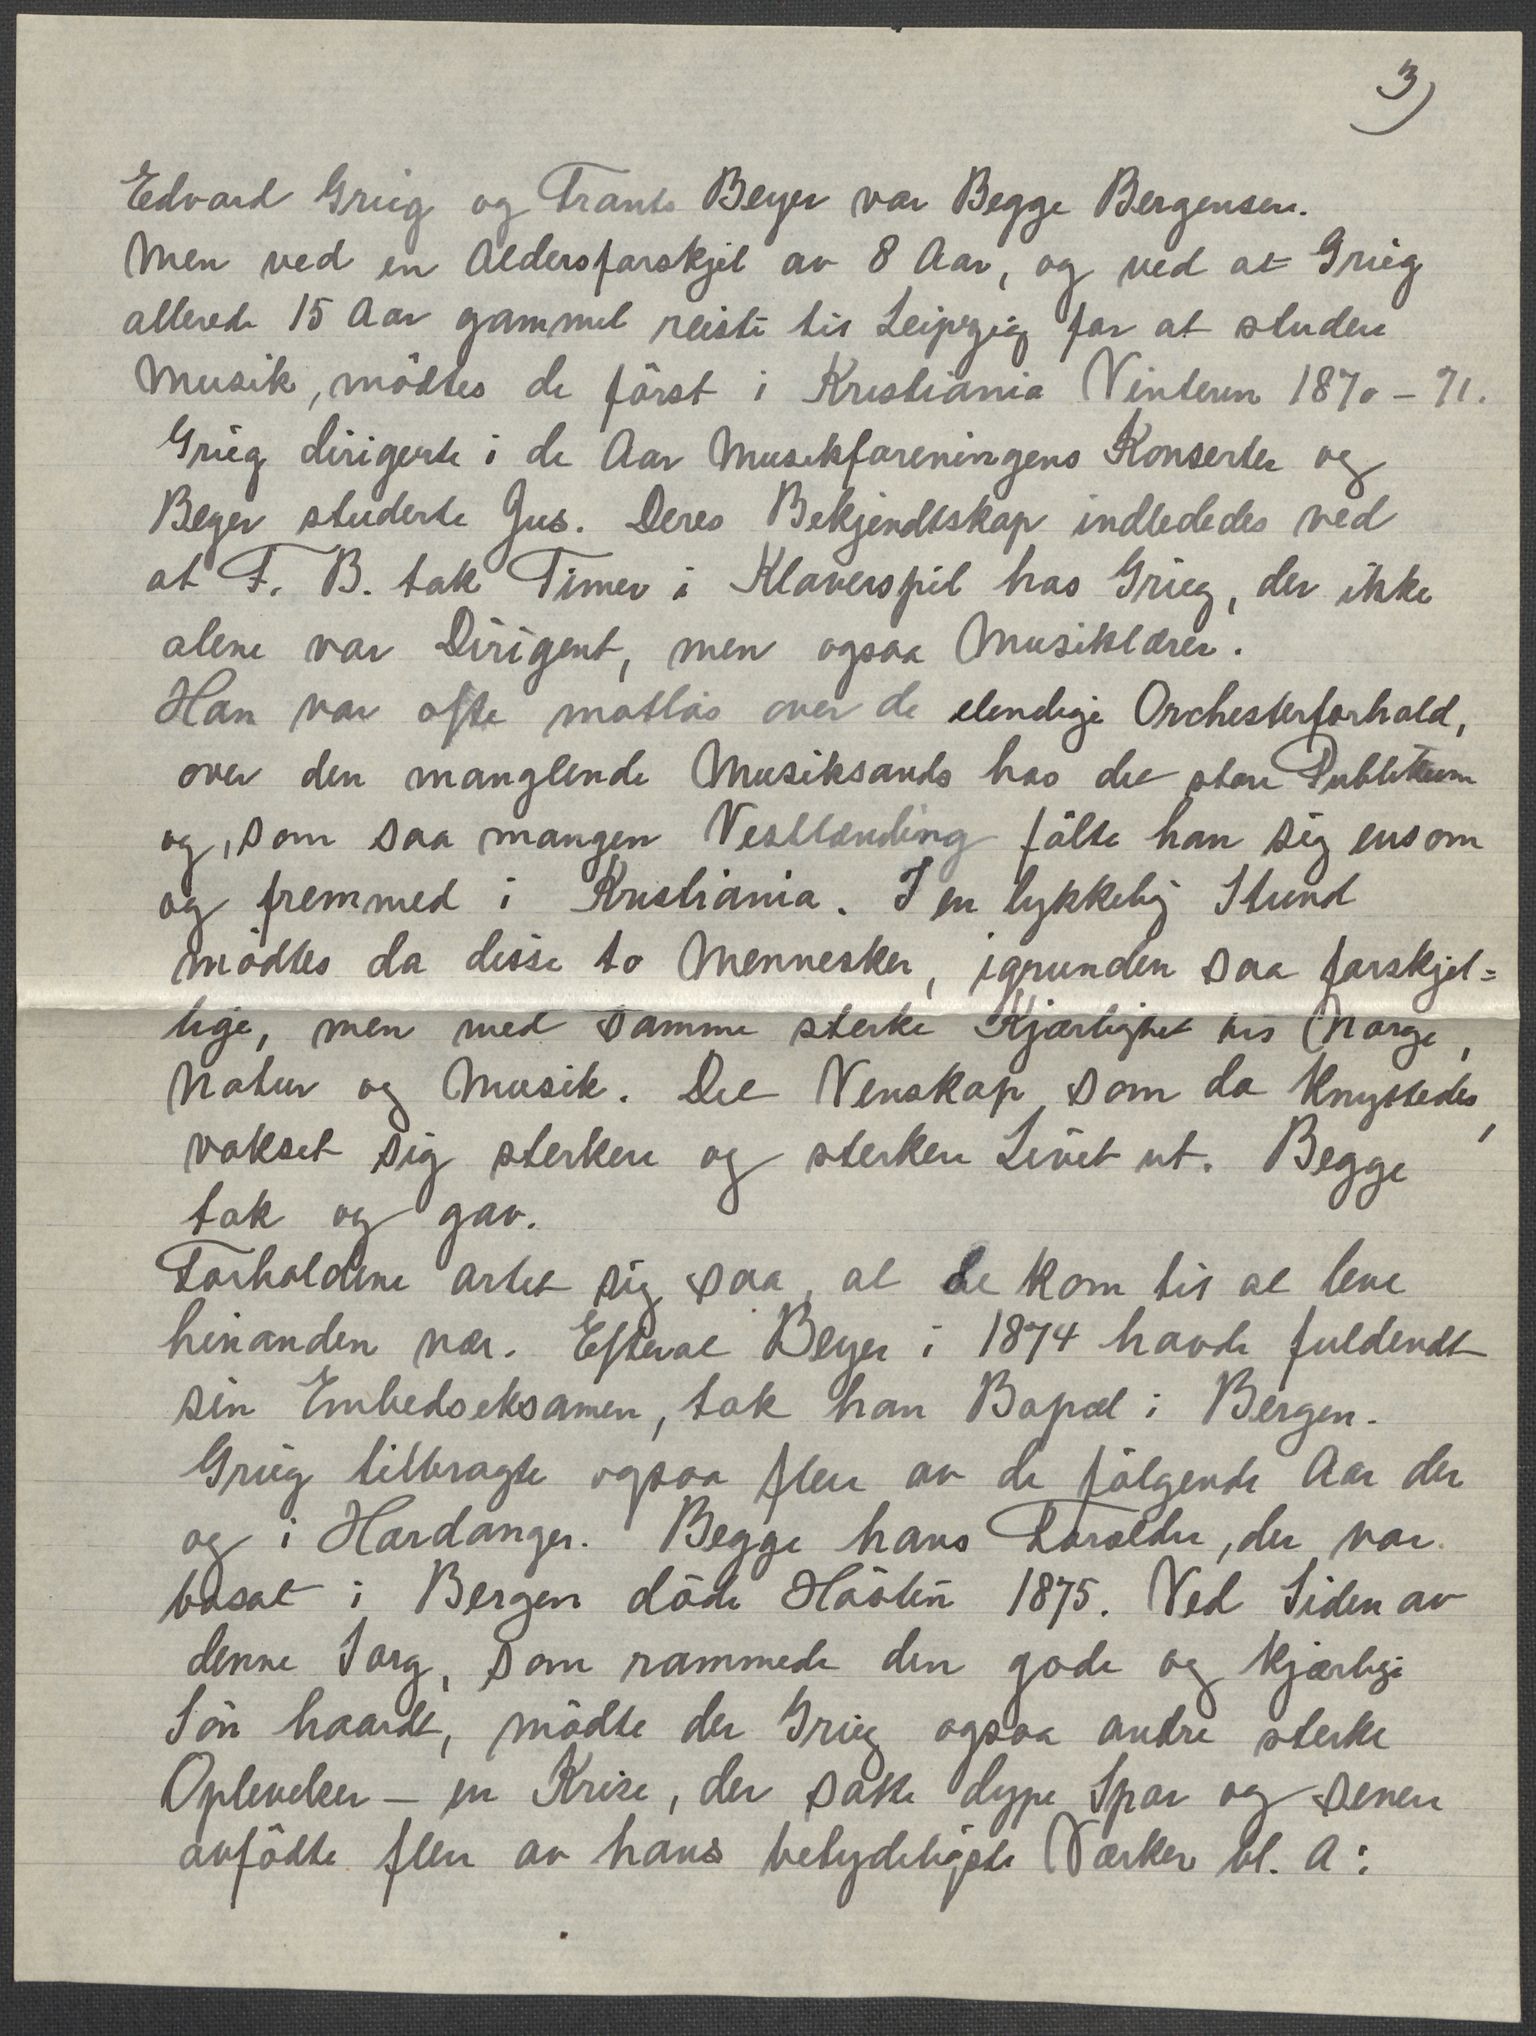 3)
Edvard Grieg og Frants Beyer var Begge Bergensere.
Men ved en Aldersforskjel av 8 Aar, og ved at Grieg
allerede 15 Aar gammel reiste til Leipzig for at studere
Musik, mödtes de först i Kristiania Vinteren 1870-71.
Grieg dirigerte i de Aar Musikforeningens Konserter og
Beyer studerte Jus. Deres Bekjendtskap indlededes ved
at F. B. tok Timer i Klaverspil hos Grieg, der ikke
alene var Dirigent, men ogsaa Musiklærer.
Han var ofte motlös over de elendige Orchesterforhold,
over den manglende Musiksands hos det store Publikum
og, som saa mangen Vestlænding fölte han sig ensom
og fremmed i Kristiania. I en lykkelig Stund
mödtes da disse to Mennesker, igrunden saa forskjel=
lige, men med samme sterke Kjærlighet til Norge,
Natur og Musik. Det Venskap som da knyttedes,
vokset sig sterkere og sterkere Livet ut. Begge
tok og gav.
Forholdene artet sig saa, at de kom til at leve
hinanden nær. Efterat Beyer i 1874 havde fuldendt
sin Embedseksamen, tok han Bopæl i Bergen.
Grieg tilbragte ogsaa flere av de fölgende Aar der
og i Hardanger. Begge hans Forældre, der var
bosat i Bergen döde Hösten 1875. Ved Siden av
denne Sorg, som rammede den gode og kjærlige
Sön haardt, mödte der Grieg ogsaa andre sterke
Oplevelser – en Krise, der satte dype Spor og senere
avfödte flere av hans betydeligste Værker bl. A: